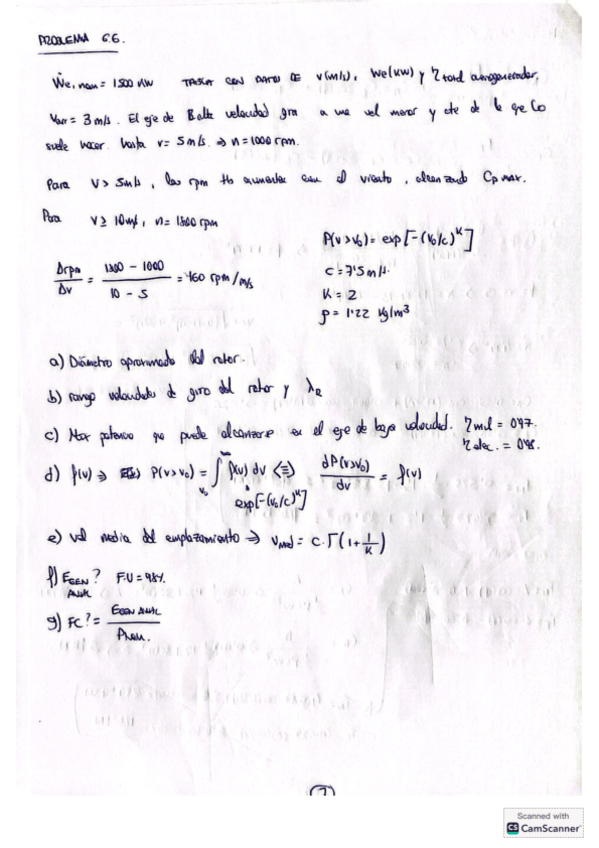 PROBLEMA 6.6.
Ẇe,nom = 1500 KW TABLA CON DATOS DE v(m/s), We(KW) y η total aerogenerador,
Varr = 3 m/s. El eje de alta velocidad gira a una vel menor y cte de lo que lo
suele hacer. Hasta v = 5 m/s. ⇒ n = 1000 rpm.
Para V > 5m/s, las rpm aumentan con el viento, alcanzando Cp max.
Para V ≥ 10 m/s, n = 1800 rpm
P(v>v₀) = exp[-(v₀/c)^K]
Δrpm/Δv = (1800 - 1000)/(10 - 5) = 160 rpm/m/s
c = 7'5 m/s.
K = 2
ρ = 1'22 Kg/m³
a) Diámetro aproximado del rotor.
b) rango velocidades de giro del rotor y λR
c) Max potencia que puede alcanzarse en el eje de baja velocidad. η mul = 0'97.
η elec. = 0'98.
d) f(v) ⇒ P(v>v₀) = ∫ f(v) dv ⟨≡⟩ dP(v>v₀)/dv = f(v)
v₀
exp[-(v₀/c)^K]
e) Vel media del emplazamiento ⇒ Vmed = c.Γ(1+1/K)
f) EGEN ANUAL? F.U = 98%.
g) FC? = EGEN ANUAL / Pnom.
(7)
Scanned with
CS CamScanner